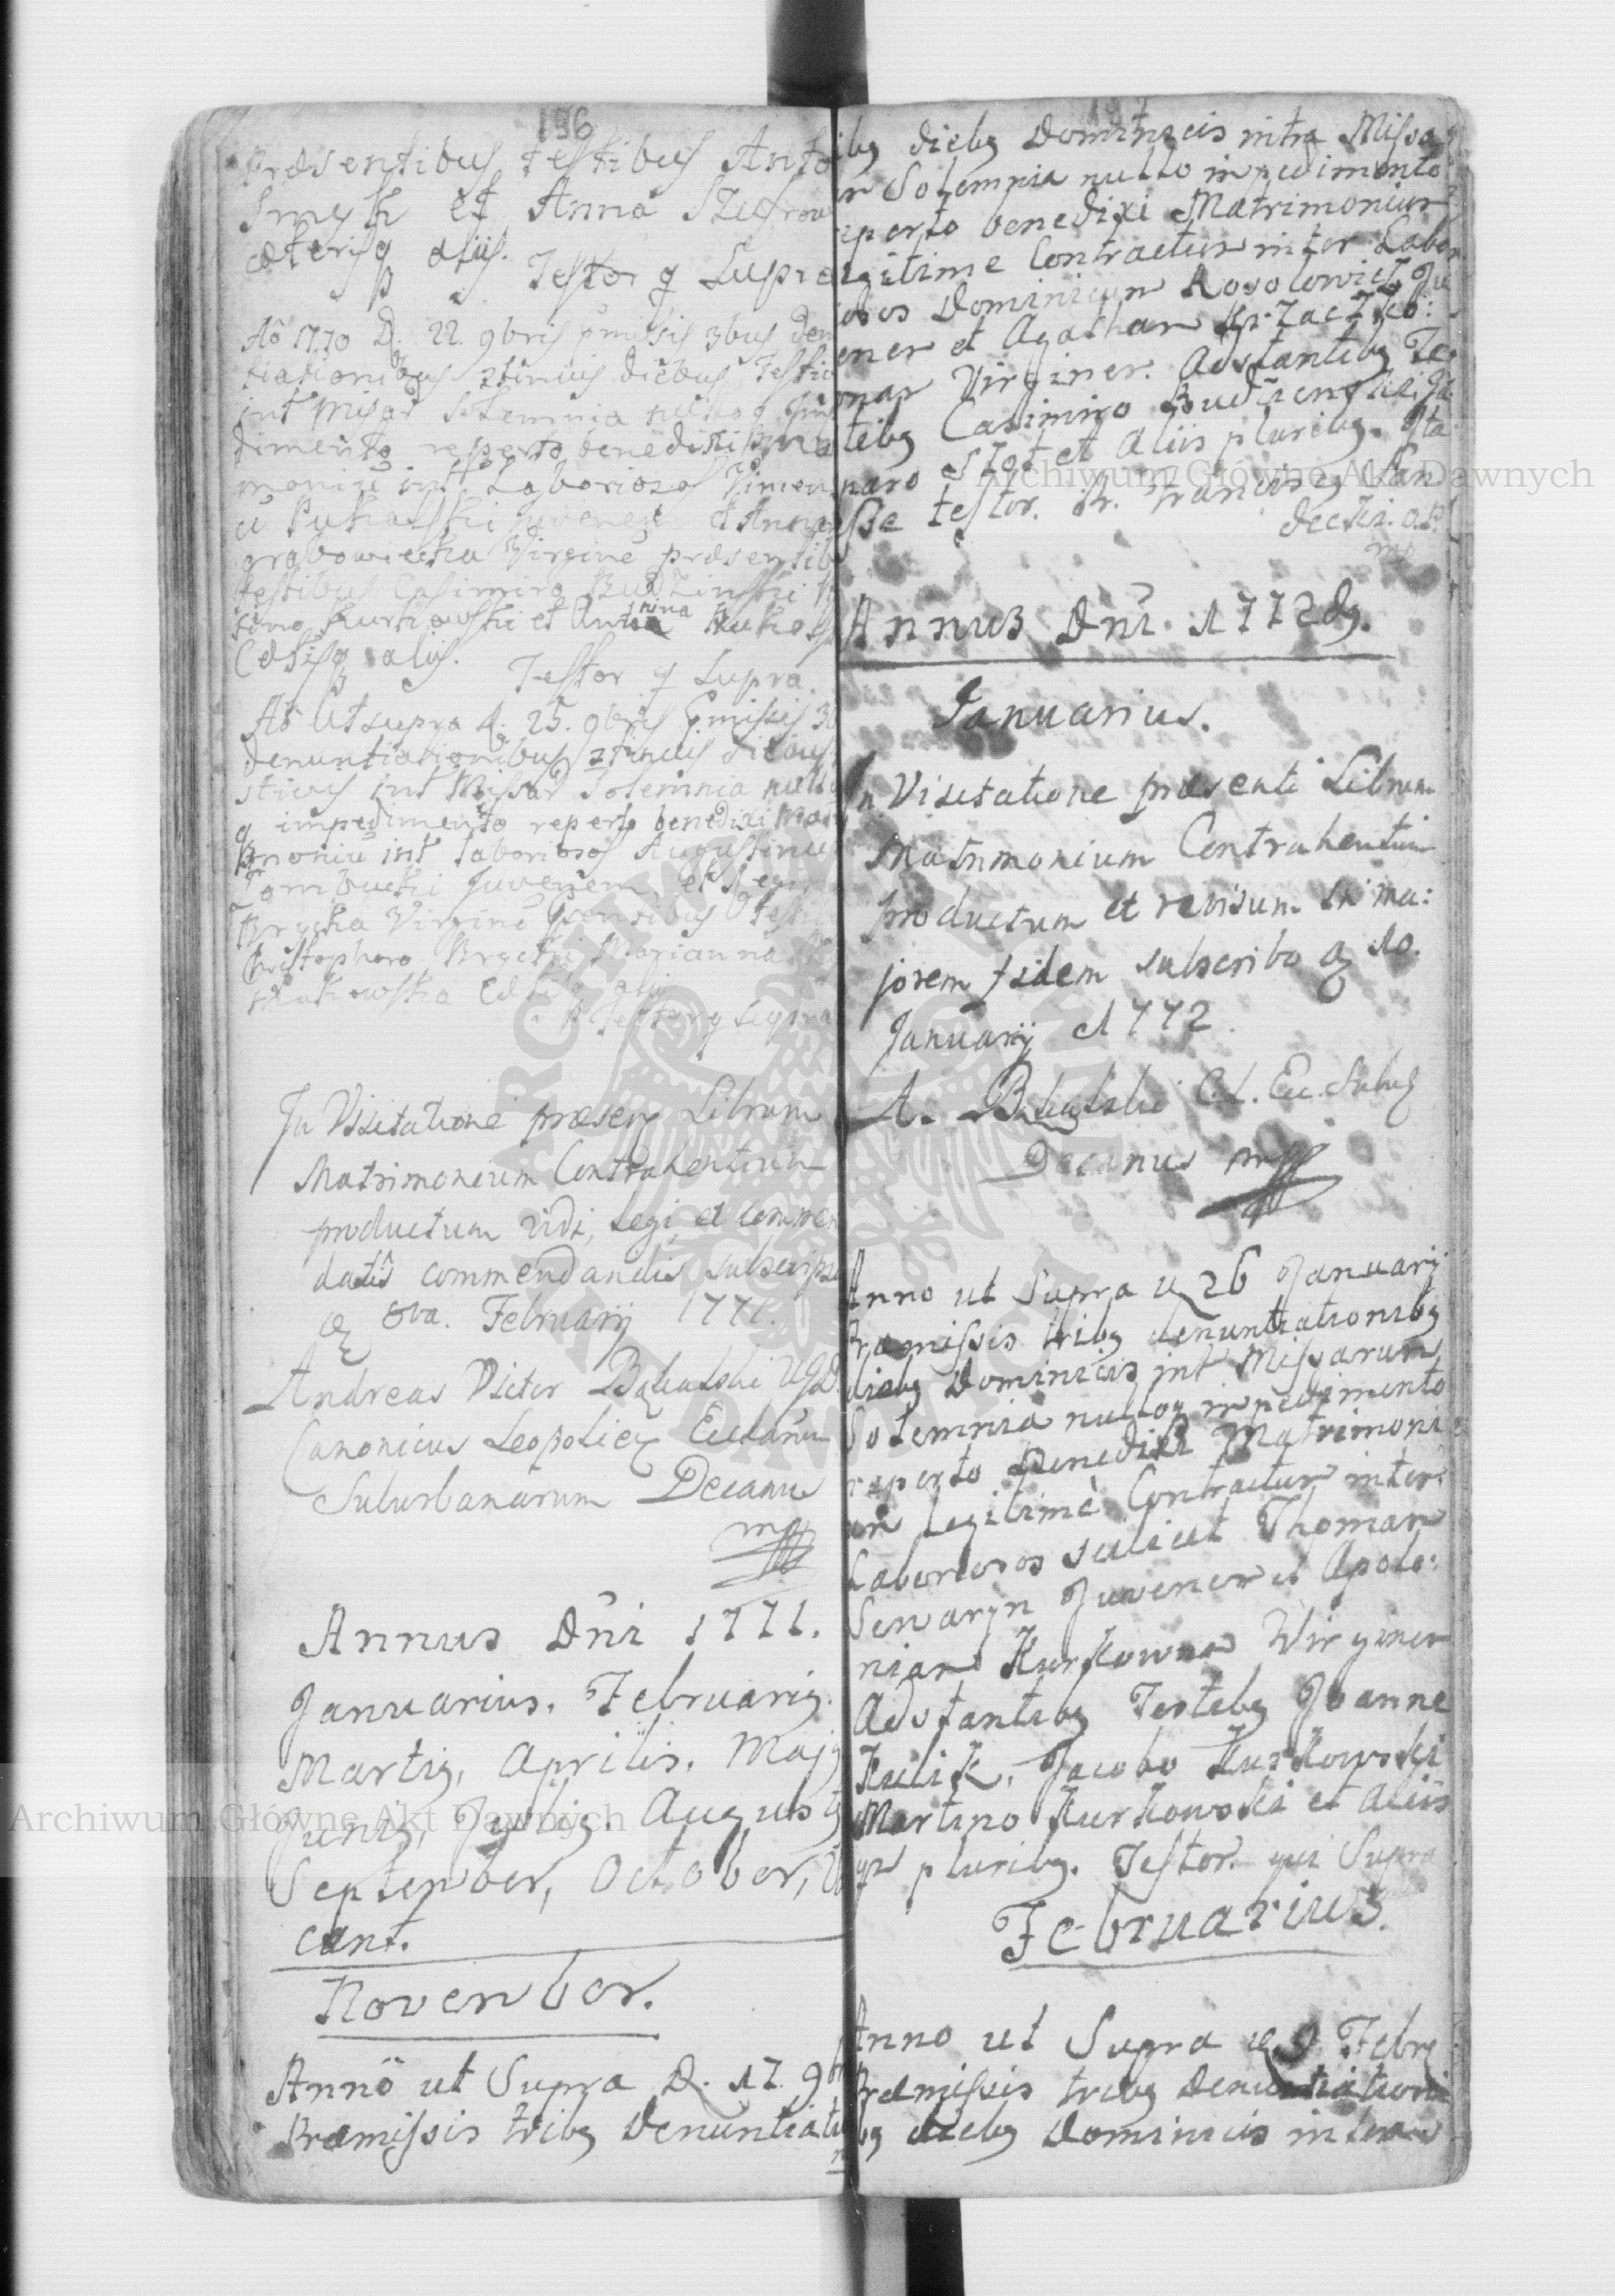 196
Præsentibus testibus Anto
Smyk et Anna
cæterisq aliis.
Testor q Supra
Aō 1770 D. 22. 9bris pmissis 3bus den
tiationibus 2tinuis diebus Festiv
int Misar Solemnia nulloq Im
dimento reperto benedixi Ma
moniū int Laboriosos Vincen
ū Pukalski juvenem et Annam
grabowiecka Virginē præsentib
testibus Casimiro Budzinski
Kurkowski et
Cæt̄isq aliis.
Testor q Supra
Aō Ut supra d. 25. 9bris pmissis 3b
denuntiationibus 2tinuis diebus
stivis int Missar Solemnia nullo
q impedimento reperto benedixi Matr
imoniū int laboriosos Augustinus
Juvenem et Regin
Brycka Virginē psentibus Testib
Christophoro Brycki Marianna
Cætisq aliis
Testor q Supra
In Visitatione præsens Librum
Matrimonium Contrahentium
productum vidi, legi, et commen
datis commendandis subscripsi
8va. Februarij 1771.
Andreas Victor
Canonicus Leopolien Ecclarum
Suburbanarum Decanus
mp
Annus Dn̄i 1771.
Januarius. Februarig.
Martig, Aprilis, Majg
Junig, Julig, Augustg
September, October, Va
cant.
November.
Anno ut Supra D. 17. 9br
Præmissis tribg Denuntiatio
n
ibg diebg Dominicis intra Missar
Solempnia nullo inpedimento
reperto benedixi Matrimonium
legitime Contractum inter Labor
iosos Dominicum Rosolowicz Ju
venem et Agatham
Virginem. Adstantibg Tes
tibg Casimiro Budzenski
et Aliis pluribg. Ita
esse testor. Fr. Franciscg
mp
Annus Dn̄i. 1772dg.
Januarius.
In Visitatione præsenti Librum
Matrimonium Contrahentium
productum et revisum in ma:
jorem fidem subscribo 10.
Januarij 1772.
A. C. L. Ec. Subug
Decanus mp
Anno ut Supra 26 Januarij
Præmissis tribg denuntiationibg
diebg Dominicis int Missarum
Solemnia nulloq inpedimento
reperto Benedixi Matrimoni
um legitimè Contractum inter
Laboriosos scilicet Thomam
Sewaryn Juvenem et Apolo:
niam Kurkowna Virginem
Adstantibg Testibg Joanne
Kulik, Jacobo Kurkowski
Martino Kurkowski et Aliis
qz pluribg. Testor qui Supra
Februarius.
Anno ut Supra 9 Febrg
Præmissis tribg Denuntiationi
bg diebg Dominicis intra